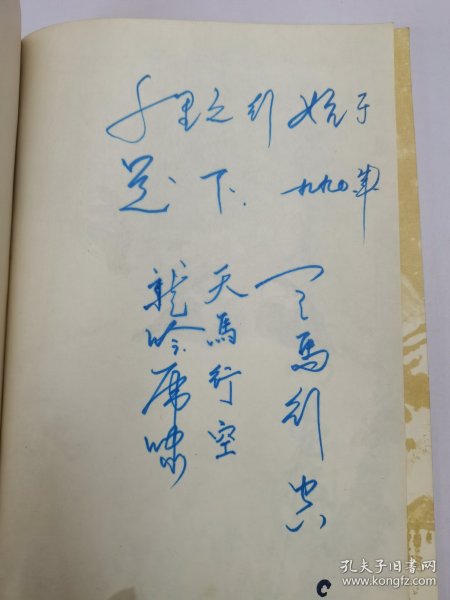 千里之行 始于
足下. 一九九〇年
天马行空
天馬行空
龍吟虎啸
孔夫子旧书网
www.kongfz.com